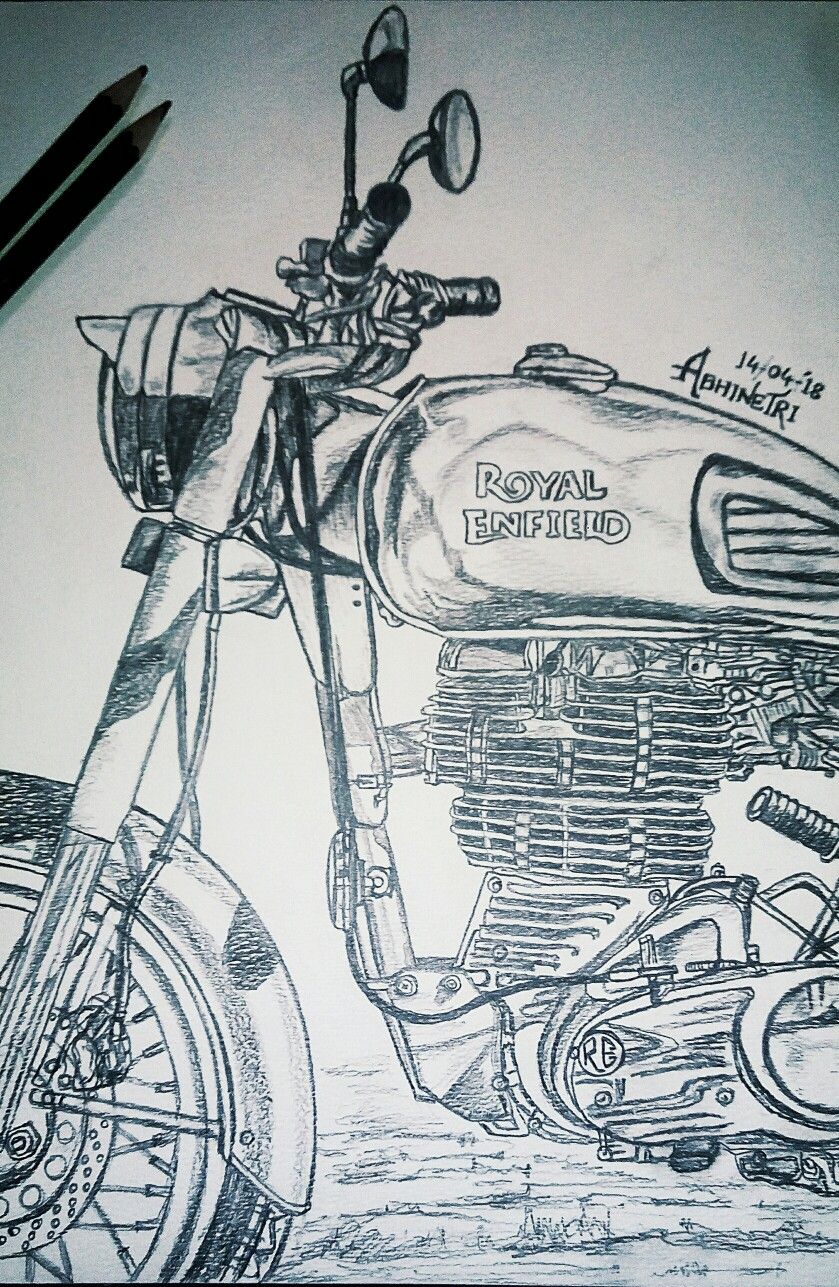 14-04-'18
ABHINETRI
ROYAL
ENFIELD
RE